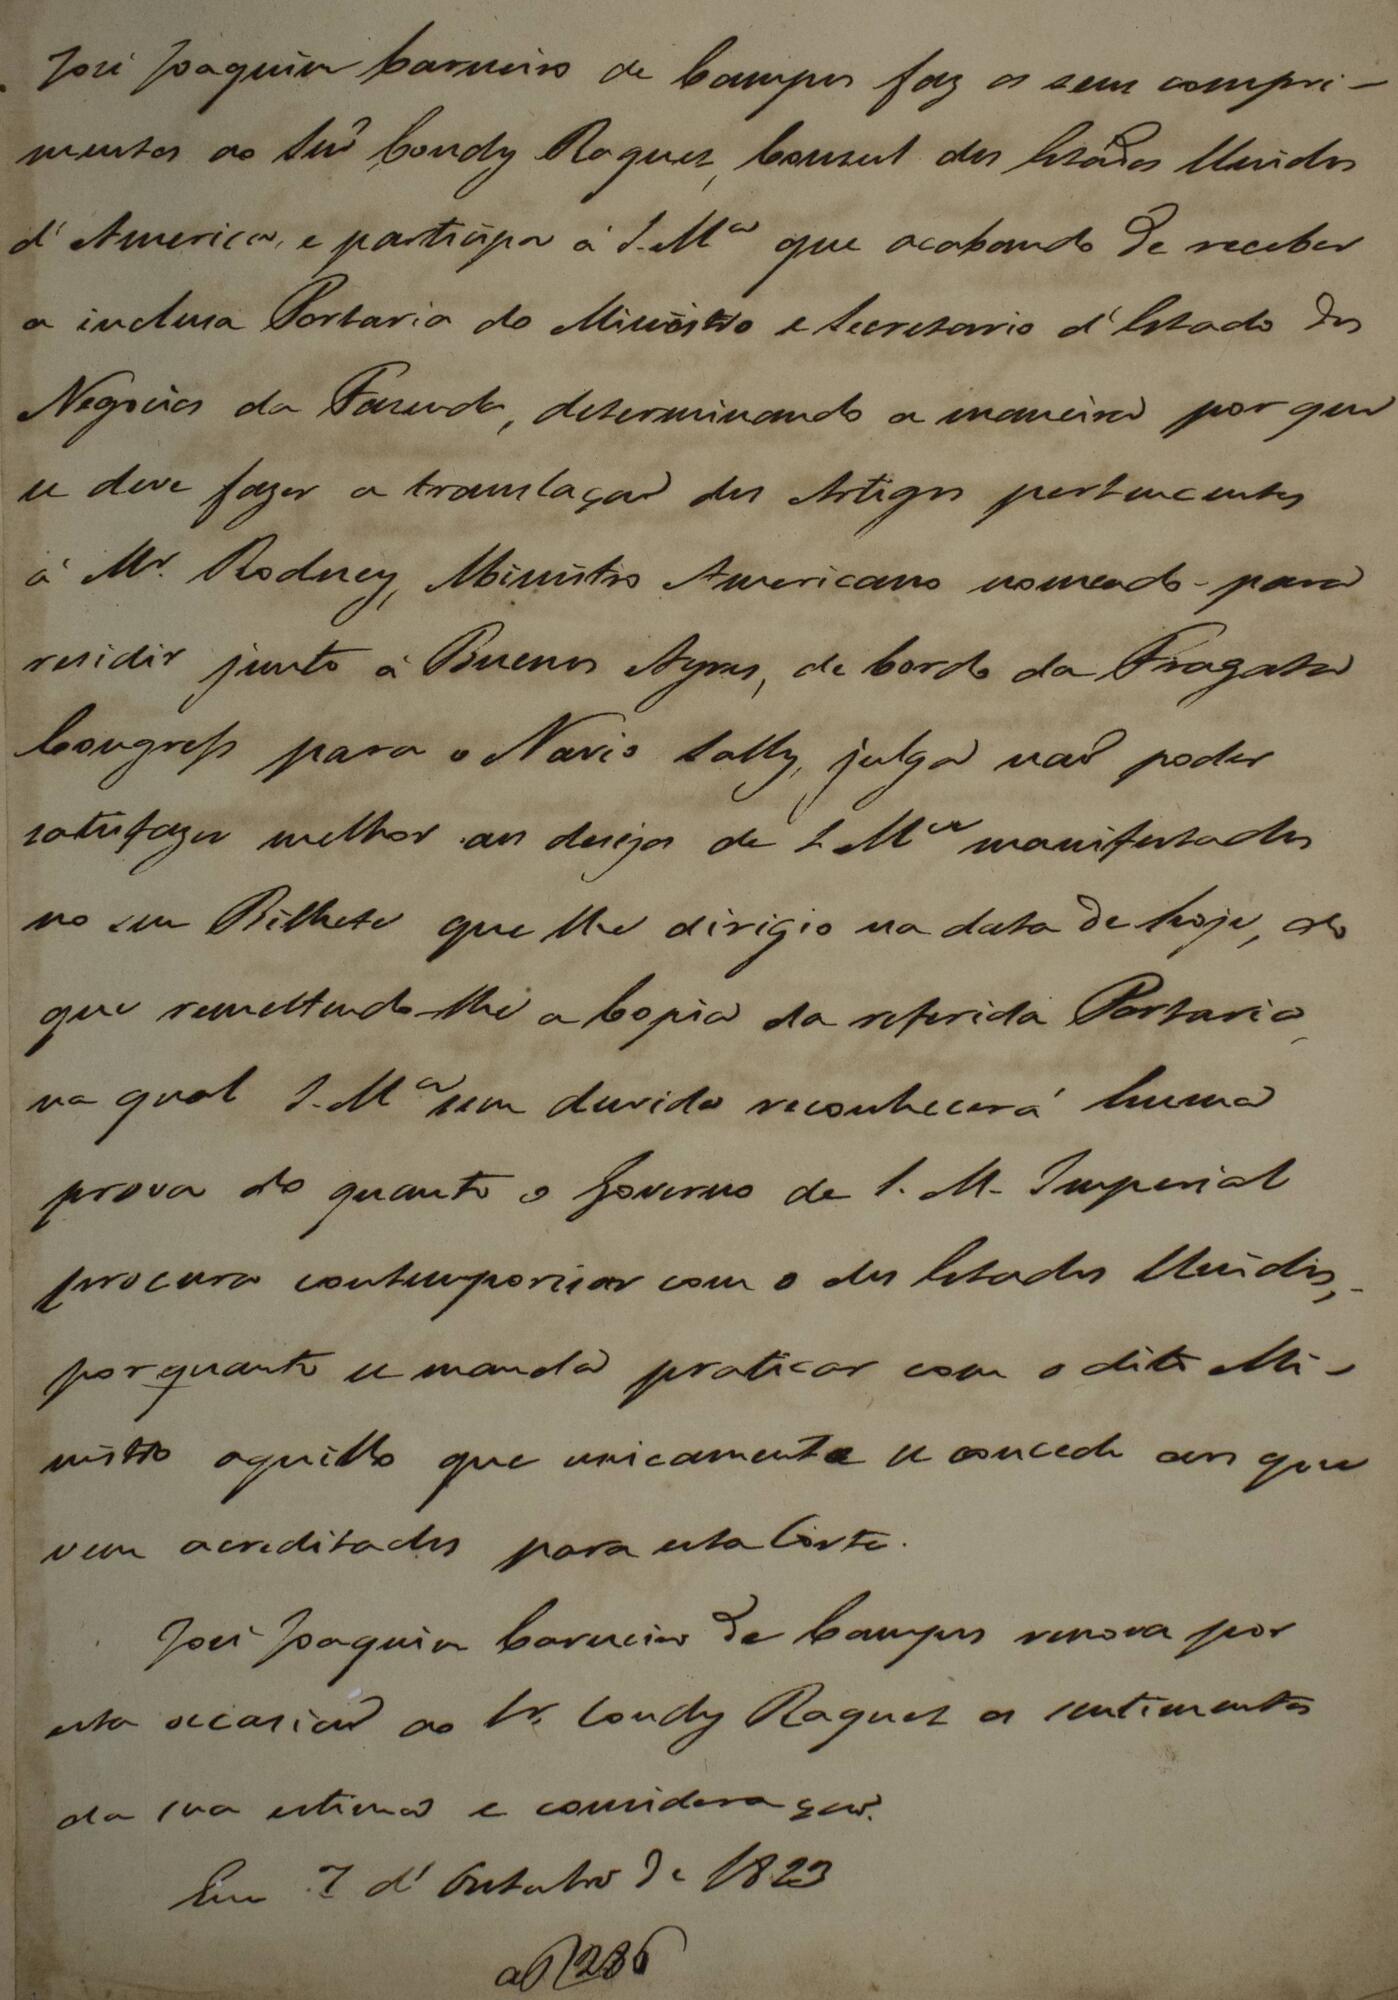 José Joaquim Carneiro de Campos faz os seus compri-
mentos ao Snr̃ Condy Raguet, Consul dos Estados Unidos
d'America, e participa á S. Mce que acabando de receber
a inclusa Portaria do Ministro e Secretario d'Estado dos
Negocios da Fazenda, determinando a maneira por que
se deve fazer a translaçaõ dos Artigos pertencentes
á Mr. Rodney, Ministro Americano nomeado para
residir junto á Buenos Ayres, de bordo da Fragata
Congress para o Navio Sally, julga naõ poder
satisfazer melhor aos desejos de S. Mce manifestados
no seu Bilhete que lhe dirigio na data de hoje, do
que remettendo-lhe a Copia da referida Portaria,
na qual S. Mce sem duvida reconhecerá huma
prova do quanto o Governo de S. M. Imperial
procura contemporisar com o dos Estados Unidos,
porquanto se manda praticar com o dito Mi-
nistro aquillo que unicamente se concede aos que
vem acreditados para esta Corte.
José Joaquim Carneiro de Campos renova por
esta occasiaõ ao Sr. Condy Raguet os sentimentos
da sua estima e consideraçaõ.
Em 7 d'Outubro de 1823
286